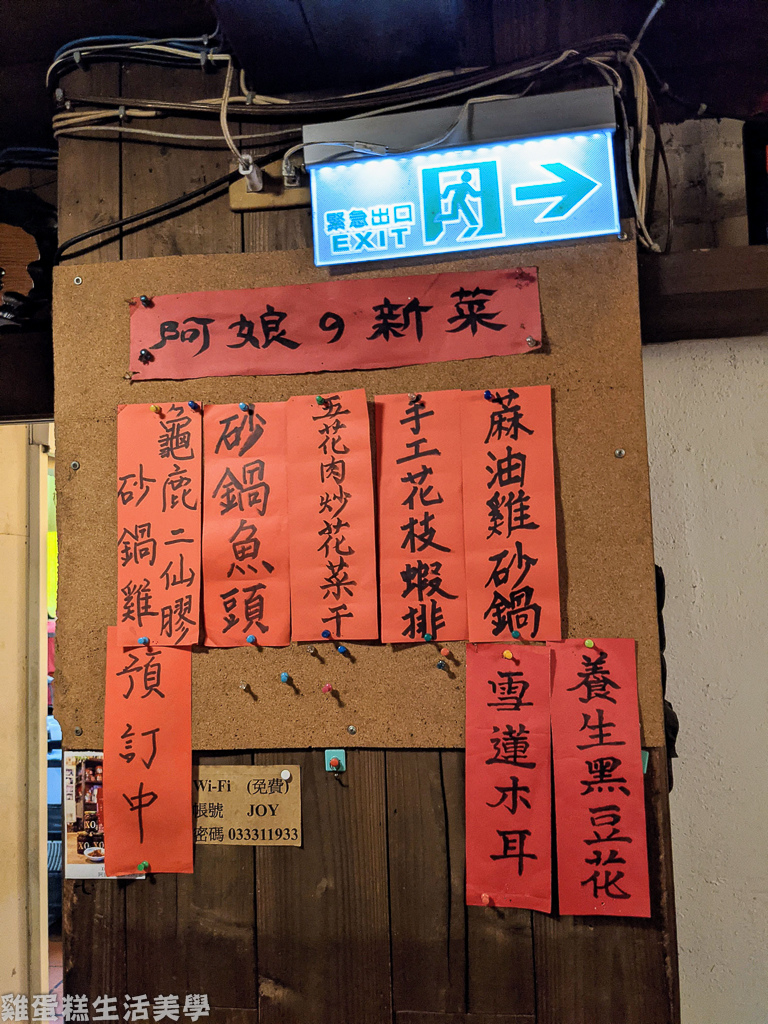 緊急出口
EXIT
阿娘の新菜
蔴油雞砂鍋
手工花枝蝦排
五花肉炒花菜干
砂鍋魚頭
龜鹿二仙膠
砂鍋雞
預訂中
養生黑豆花
雪蓮木耳
Wi-Fi (免費)
帳號 JOY
密碼 033311933
XO
XO
雞蛋糕生活美學